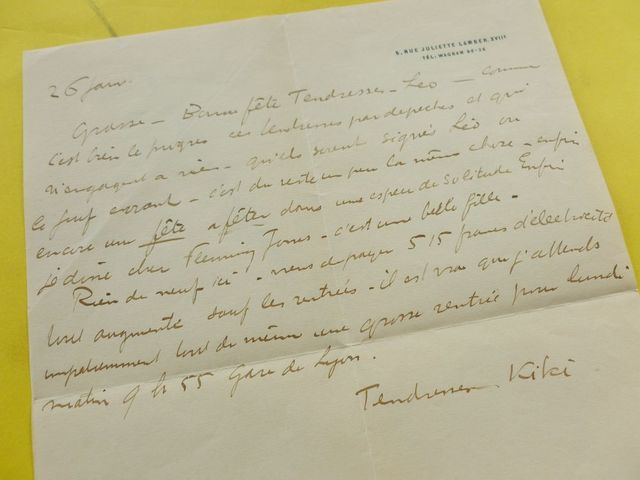 5, RUE JULIETTE LAMBER, XVIIe
TÉL: WAGRAM
26 janv.
Grasse – Bonne fête Tendresses – Léo – comme
c'est bien le progrès ces tendresses par depeches et qui
n'engagent a rien – qu'ils soient signés Léo ou
le juif errant – c'est du reste un peu la même chose – enfin
encore une fête a fêter dans une espece de solitude Enfin
je dine chez Flemming Jones – c'est une belle fille –
Rien de neuf ici – viens de payer 515 francs d'électricité
tout augmente sauf les rentrées – il est vrai que j'attends
impatiemment tout de même une grosse rentrée pour lundi
matin 9 h 55 Gare de Lyon.
Tendresses Kiki